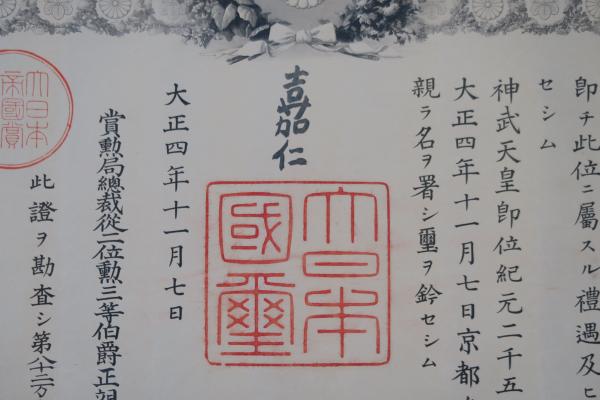 即チ此位ニ屬スル禮遇及ヒ
セシム
神武天皇即位紀元二千五
大正四年十一月七日京都
親ラ名ヲ署シ璽ヲ鈐セシム
嘉仁
大日本國璽
大正四年十一月七日
賞勲局總裁從二位勲三等伯爵正親
大日本帝國賞
此證ヲ勘査シ第